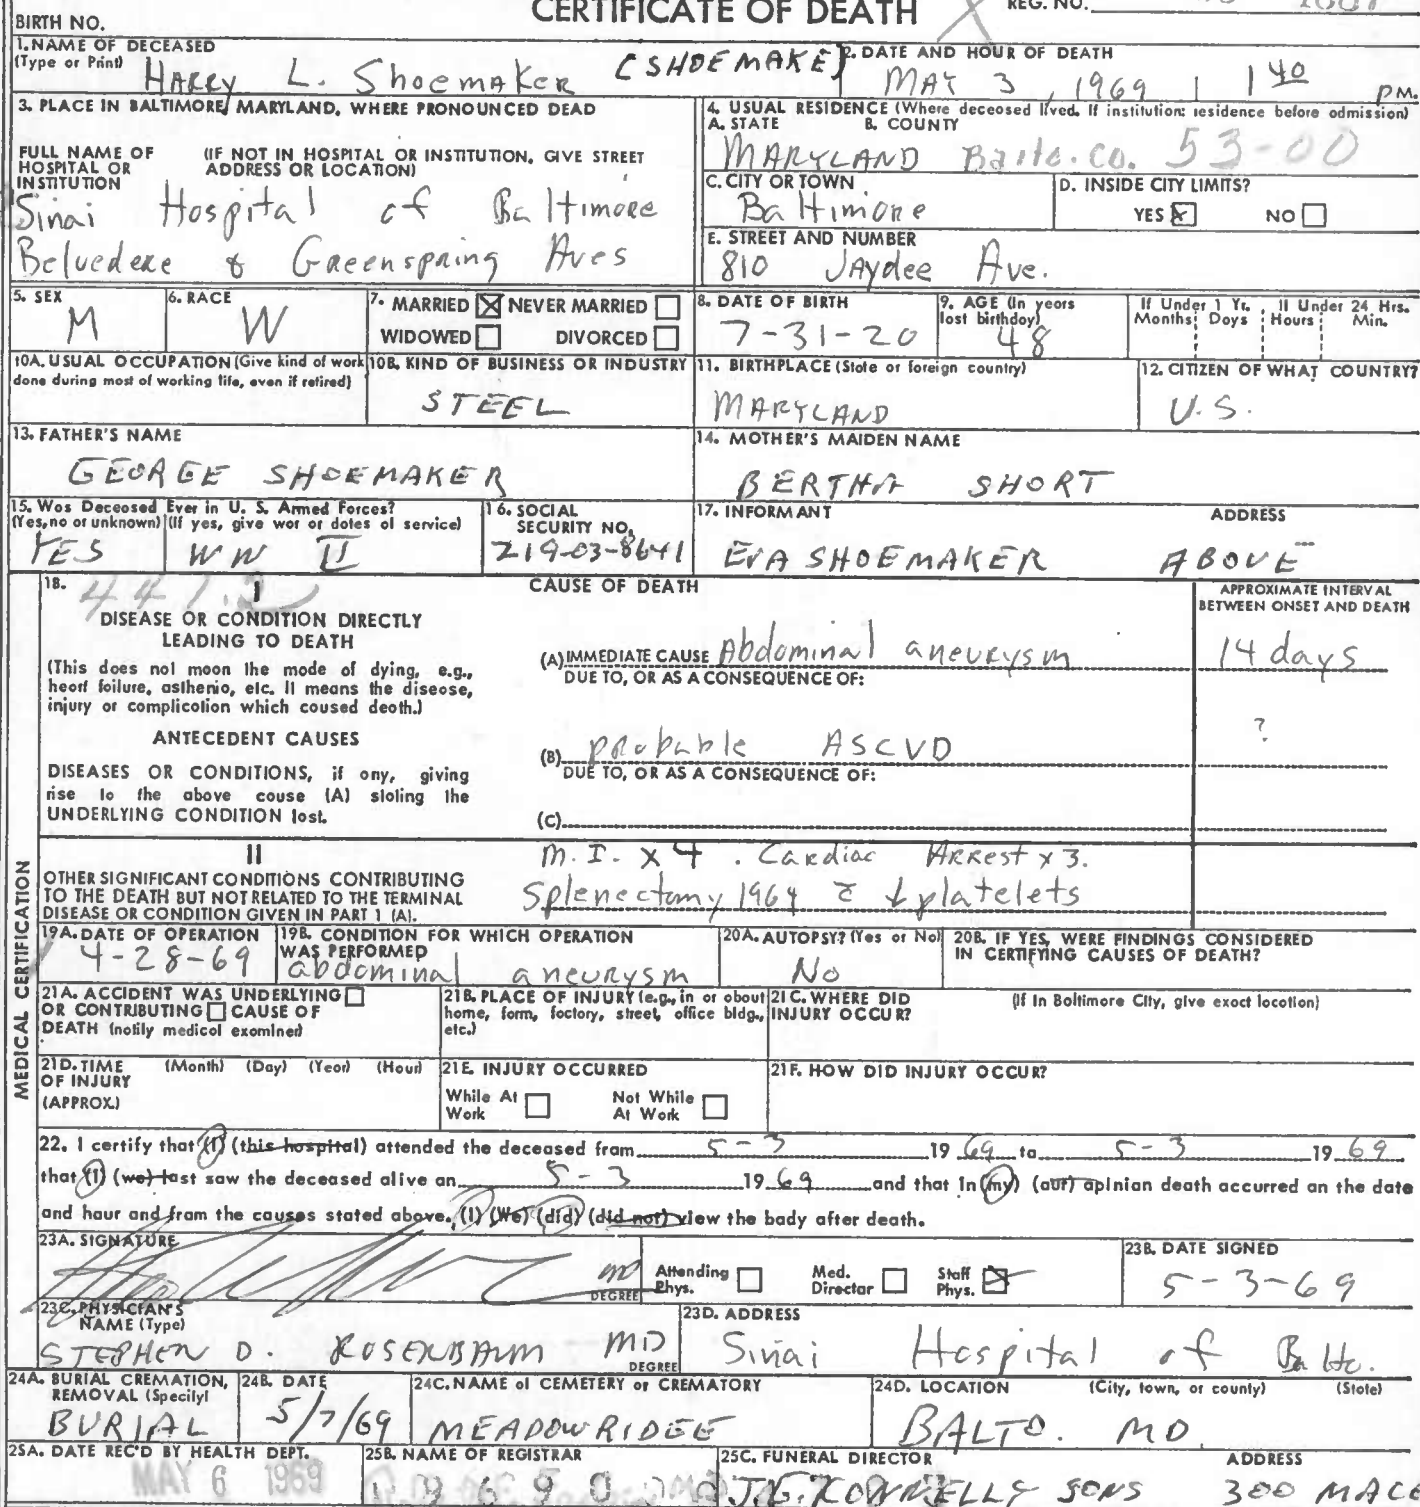 CERTIFICATE OF DEATH
REG. NO.
BIRTH NO.
1. NAME OF DECEASED
(Type or Print) HARRY L. Shoemaker (SHOEMAKE)
2. DATE AND HOUR OF DEATH
MAY 3, 1969 1 40 P.M.
3. PLACE IN BALTIMORE, MARYLAND, WHERE PRONOUNCED DEAD
FULL NAME OF HOSPITAL OR INSTITUTION
(IF NOT IN HOSPITAL OR INSTITUTION, GIVE STREET ADDRESS OR LOCATION)
Sinai Hospital of Baltimore
Belvedere & Greenspring Aves
4. USUAL RESIDENCE (Where deceased lived. If institution: residence before admission)
A. STATE B. COUNTY
MARYLAND Balto. Co. 53-00
C. CITY OR TOWN
Baltimore
D. INSIDE CITY LIMITS?
YES NO
E. STREET AND NUMBER
810 Jaydee Ave.
5. SEX
M
6. RACE
W
7. MARRIED NEVER MARRIED
WIDOWED DIVORCED
8. DATE OF BIRTH
7-31-20
9. AGE (In years last birthday)
48
If Under 1 Yr. If Under 24 Hrs.
Months Days Hours Min.
10A. USUAL OCCUPATION (Give kind of work done during most of working life, even if retired)
10B. KIND OF BUSINESS OR INDUSTRY
STEEL
11. BIRTHPLACE (State or foreign country)
MARYLAND
12. CITIZEN OF WHAT COUNTRY?
U.S.
13. FATHER'S NAME
GEORGE SHOEMAKER
14. MOTHER'S MAIDEN NAME
BERTHA SHORT
15. Was Deceased Ever in U. S. Armed Forces?
(Yes, no or unknown) (If yes, give war or dates of service)
YES WW II
16. SOCIAL SECURITY NO.
219-03-8641
17. INFORMANT ADDRESS
EVA SHOEMAKER ABOVE
MEDICAL CERTIFICATION
18. 441.2
I
DISEASE OR CONDITION DIRECTLY
LEADING TO DEATH
(This does not mean the mode of dying, e.g.,
heart failure, asthenia, etc. It means the disease,
injury or complication which caused death.)
ANTECEDENT CAUSES
DISEASES OR CONDITIONS, if any, giving
rise to the above cause (A) stating the
UNDERLYING CONDITION last.
CAUSE OF DEATH
APPROXIMATE INTERVAL BETWEEN ONSET AND DEATH
(A) IMMEDIATE CAUSE Abdominal aneurysm 14 days
DUE TO, OR AS A CONSEQUENCE OF:
(B) probable ASCVD ?
DUE TO, OR AS A CONSEQUENCE OF:
(C)
II
OTHER SIGNIFICANT CONDITIONS CONTRIBUTING
TO THE DEATH BUT NOT RELATED TO THE TERMINAL
DISEASE OR CONDITION GIVEN IN PART 1 (A).
M.I. x 4. Cardiac Arrest x 3.
Splenectomy 1964 c̄ ↓ platelets
19A. DATE OF OPERATION
4-28-69
19B. CONDITION FOR WHICH OPERATION WAS PERFORMED
abdominal aneurysm
20A. AUTOPSY? (Yes or No)
No
20B. IF YES, WERE FINDINGS CONSIDERED IN CERTIFYING CAUSES OF DEATH?
21A. ACCIDENT WAS UNDERLYING
OR CONTRIBUTING CAUSE OF
DEATH (notify medical examiner)
21B. PLACE OF INJURY (e.g., in or about home, farm, factory, street, office bldg., etc.)
21C. WHERE DID INJURY OCCUR?
(If in Baltimore City, give exact location)
21D. TIME OF INJURY (APPROX.)
(Month) (Day) (Year) (Hour)
21E. INJURY OCCURRED
While At Work Not While At Work
21F. HOW DID INJURY OCCUR?
22. I certify that (I) (this hospital) attended the deceased from 5-3 1969 to 5-3 1969
that (I) (we) last saw the deceased alive on 5-3 1969 and that in (my) (our) opinian death accurred on the date
and hour and from the causes stated above. (I) (We) (did) (did not) view the body after death.
23A. SIGNATURE
MD DEGREE
Attending Phys. Med. Director Staff Phys.
23B. DATE SIGNED
5-3-69
23C. PHYSICIAN'S NAME (Type)
STEPHEN D. ROSENBAUM MD DEGREE
23D. ADDRESS
Sinai Hospital of Balto.
24A. BURIAL CREMATION, REMOVAL (Specify)
BURIAL
24B. DATE
5/7/69
24C. NAME of CEMETERY or CREMATORY
MEADOWRIDGE
24D. LOCATION (City, town, or county) (State)
BALTO. MD
25A. DATE REC'D BY HEALTH DEPT.
MAY 6 1969
25B. NAME OF REGISTRAR
25C. FUNERAL DIRECTOR ADDRESS
J.G. CONNELLY SONS 300 MACE